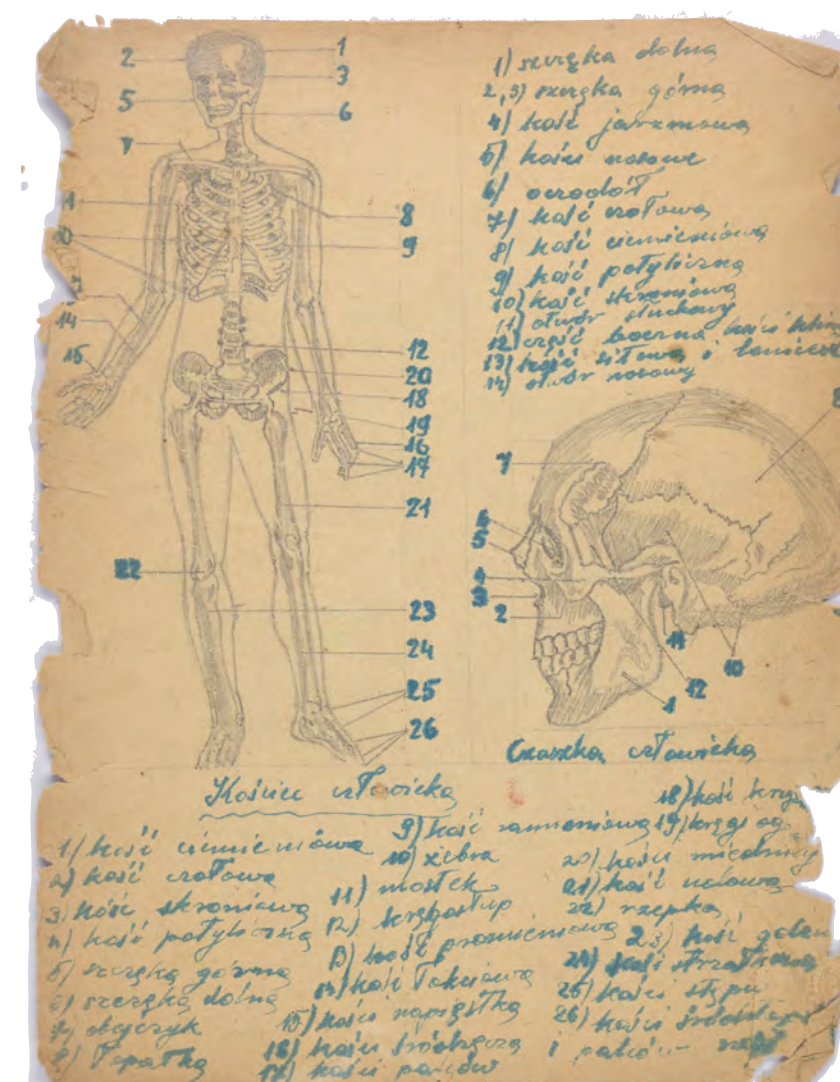 1) szczęka dolna
2,3) szczęka górna
4) kość jarzmowa
5) kości nosowe
6) oczodół
7) kość czołowa
8) kość ciemieniowa
9) kość potyliczna
10) kość skroniowa
11) otwór słuchowy
12) część boczna kości
13) kość sitowa i
14) otwór nosowy
2
1
3
5
6
7
8
9
10
14
15
12
20
18
19
16
17
21
22
23
24
25
26
7
6
5
4
3
2
11
10
12
1
Czaszka człowieka
Kościec człowieka
1) kość ciemieniowa
2) kość czołowa
3) kość skroniowa
4) kość potyliczna
5) szczęka górna
6) szczęka dolna
7) obojczyk
8) łopatka
9) kość ramieniowa
10) żebra
11) mostek
12) kręgosłup
13) kość promieniowa
14) kość łokciowa
15) kości napięstka
16) kości śródręcza
17) kości palców
18) kość
19) kręgi
20) kości miednicy
21) kość udowa
22) rzepka
23) kość
24) kość strzałkowa
25) kości stępu
26) kości
i palców